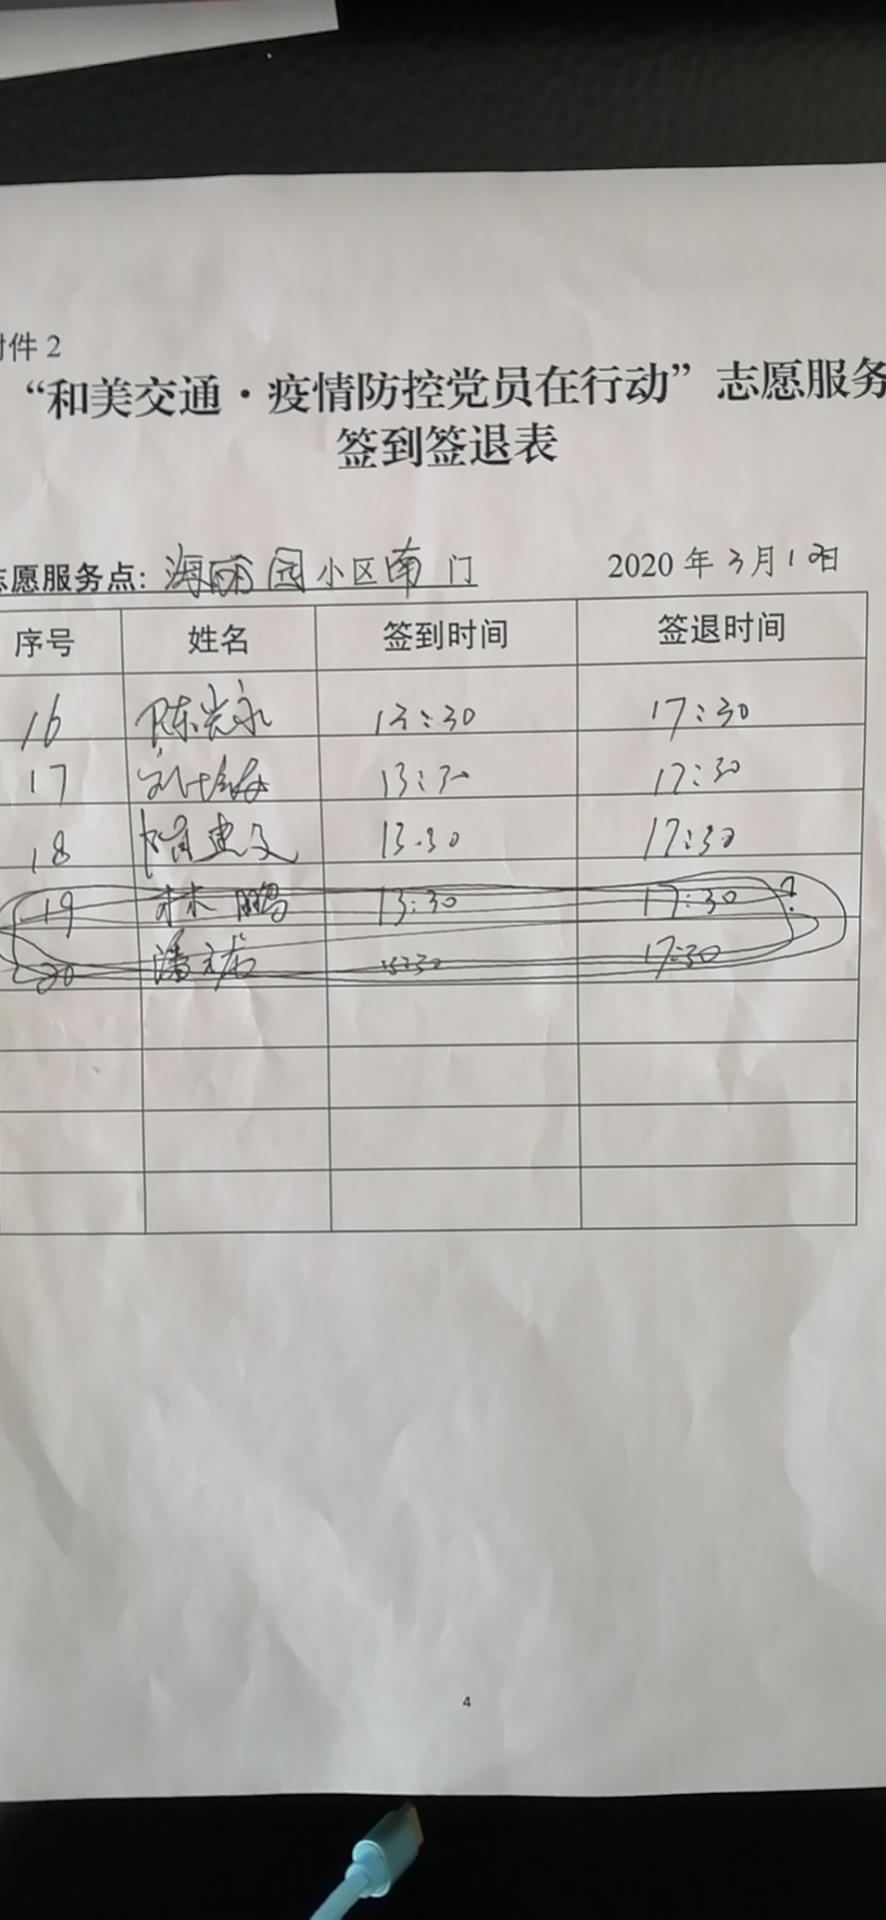 附件2
“和美交通·疫情防控党员在行动”志愿服务
签到签退表
志愿服务点: 海丽园小区南门 2020年3月1日
序号 姓名 签到时间 签退时间
16 陈 永 13:30 17:30
17 刘 13:30 17:30
18 建文 13:30 17:30
19 林鹏 13:30 17:30 ?
20 潘 17:30
4